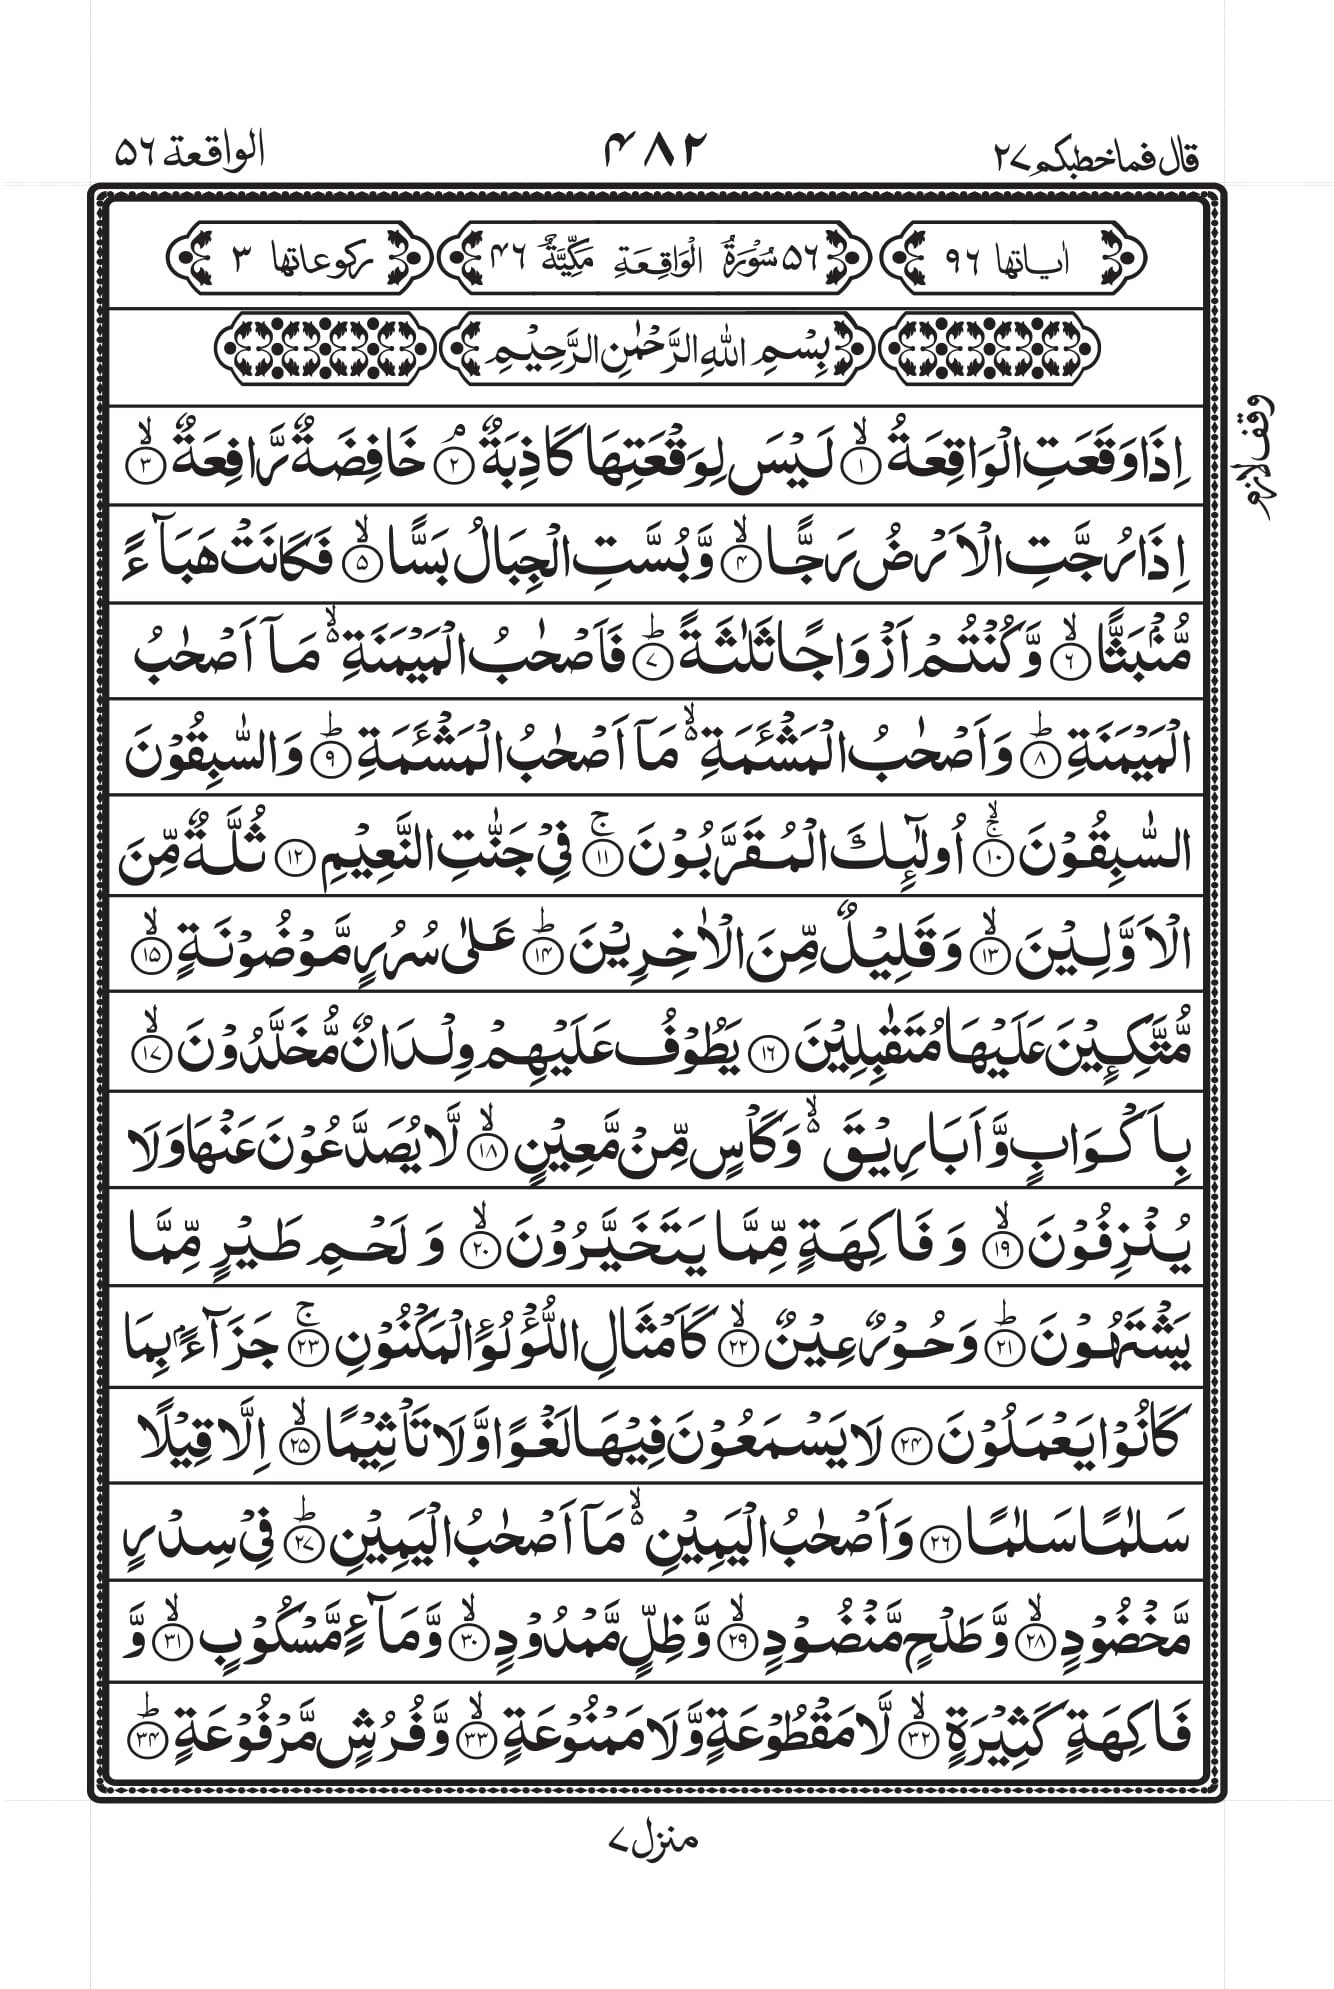 قال فماخطبكم ٢٧
۴٨٢
الواقعة ۵٦
اٰیاتها ٩٦
۵٦ سُوْرَةُ الْوَاقِعَةِ مَكِّيَّةٌ ۴٦
ركوعاتها ٣
بِسْمِ اللّٰهِ الرَّحْمٰنِ الرَّحِيْمِ
اِذَا وَقَعَتِ الْوَاقِعَةُ ۙ﴿١﴾ لَيْسَ لِوَقْعَتِهَا كَاذِبَةٌ ۘ﴿٢﴾ خَافِضَةٌ رَّافِعَةٌ ۙ﴿٣﴾
وقف لازم
اِذَا رُجَّتِ الْاَرْضُ رَجًّا ۙ﴿۴﴾ وَّبُسَّتِ الْجِبَالُ بَسًّا ۙ﴿۵﴾ فَكَانَتْ هَبَآءً
مُّنْۢبَثًّا ۙ﴿٦﴾ وَّكُنْتُمْ اَزْوَاجًا ثَلٰثَةً ؕ﴿٧﴾ فَاَصْحٰبُ الْمَيْمَنَةِ ۙ۬ مَاۤ اَصْحٰبُ
الْمَيْمَنَةِ ؕ﴿٨﴾ وَاَصْحٰبُ الْمَشْـَٔمَةِ ۙ۬ مَاۤ اَصْحٰبُ الْمَشْـَٔمَةِ ؕ﴿٩﴾ وَالسّٰبِقُوْنَ
السّٰبِقُوْنَ ۚۙ﴿١٠﴾ اُولٰٓئِكَ الْمُقَرَّبُوْنَ ۚ﴿١١﴾ فِيْ جَنّٰتِ النَّعِيْمِ ﴿١٢﴾ ثُلَّةٌ مِّنَ
الْاَوَّلِيْنَ ۙ﴿١٣﴾ وَقَلِيْلٌ مِّنَ الْاٰخِرِيْنَ ؕ﴿١۴﴾ عَلٰى سُرُرٍ مَّوْضُوْنَةٍ ۙ﴿١۵﴾
مُّتَّكِـِٕيْنَ عَلَيْهَا مُتَقٰبِلِيْنَ ﴿١٦﴾ يَطُوْفُ عَلَيْهِمْ وِلْدَانٌ مُّخَلَّدُوْنَ ۙ﴿١٧﴾
بِاَكْوَابٍ وَّاَبَارِيْقَ ۙ۬ وَكَاْسٍ مِّنْ مَّعِيْنٍ ۙ﴿١٨﴾ لَّا يُصَدَّعُوْنَ عَنْهَا وَلَا
يُنْزِفُوْنَ ۙ﴿١٩﴾ وَفَاكِهَةٍ مِّمَّا يَتَخَيَّرُوْنَ ۙ﴿٢٠﴾ وَلَحْمِ طَيْرٍ مِّمَّا
يَشْتَهُوْنَ ؕ﴿٢١﴾ وَحُوْرٌ عِيْنٌ ۙ﴿٢٢﴾ كَاَمْثَالِ اللُّؤْلُؤِ الْمَكْنُوْنِ ۚ﴿٢٣﴾ جَزَآءًۢ بِمَا
كَانُوْا يَعْمَلُوْنَ ﴿٢۴﴾ لَا يَسْمَعُوْنَ فِيْهَا لَغْوًا وَّلَا تَاْثِيْمًا ۙ﴿٢۵﴾ اِلَّا قِيْلًا
سَلٰمًا سَلٰمًا ﴿٢٦﴾ وَاَصْحٰبُ الْيَمِيْنِ ۙ۬ مَاۤ اَصْحٰبُ الْيَمِيْنِ ؕ﴿٢٧﴾ فِيْ سِدْرٍ
مَّخْضُوْدٍ ۙ﴿٢٨﴾ وَّطَلْحٍ مَّنْضُوْدٍ ۙ﴿٢٩﴾ وَّظِلٍّ مَّمْدُوْدٍ ۙ﴿٣٠﴾ وَّمَآءٍ مَّسْكُوْبٍ ۙ﴿٣١﴾ وَّ
فَاكِهَةٍ كَثِيْرَةٍ ۙ﴿٣٢﴾ لَّا مَقْطُوْعَةٍ وَّلَا مَمْنُوْعَةٍ ۙ﴿٣٣﴾ وَّفُرُشٍ مَّرْفُوْعَةٍ ؕ﴿٣۴﴾
منزل ٧